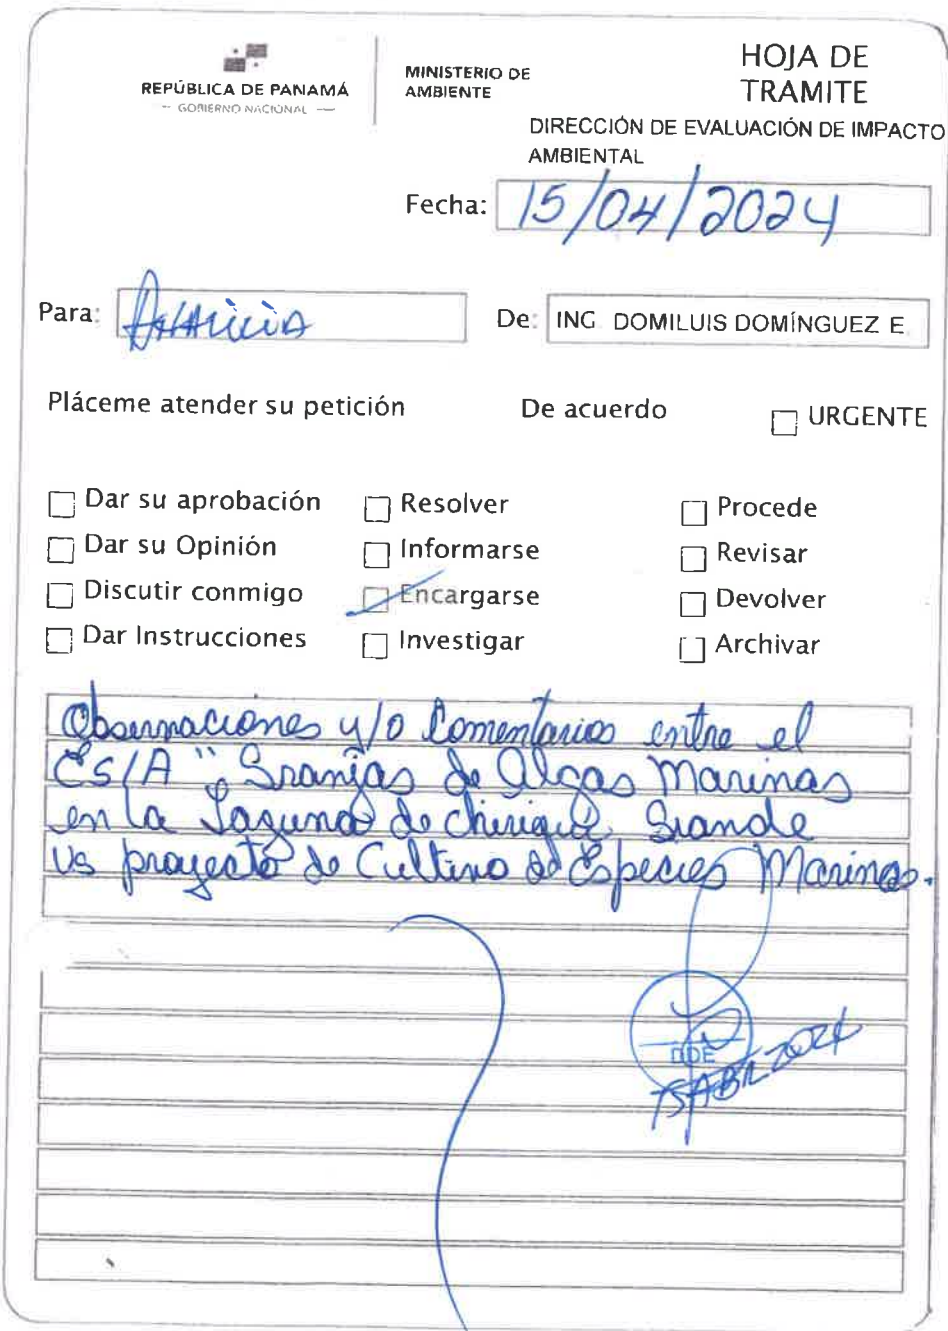 REPÚBLICA DE PANAMÁ
— GOBIERNO NACIONAL —
MINISTERIO DE
AMBIENTE
HOJA DE
TRAMITE
DIRECCIÓN DE EVALUACIÓN DE IMPACTO
AMBIENTAL
Fecha: 15/04/2024
Para:
De: ING. DOMILUIS DOMÍNGUEZ E.
Pláceme atender su petición De acuerdo URGENTE
Dar su aprobación Resolver Procede
Dar su Opinión Informarse Revisar
Discutir conmigo Encargarse Devolver
Dar Instrucciones Investigar Archivar
Observaciones y/o Comentarios entre el
EsIA " Granjas de Algas Marinas
en la Laguna de Chiriquí, Grande
vs proyecto de Cultivo de Especies Marinas.
DDE
15ABR2024